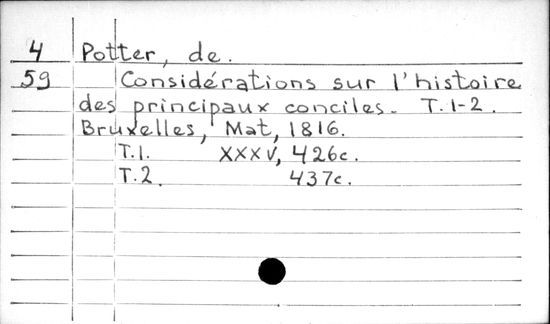 4 Potter, de.
59 Considérations sur l'histoire
des principaux conciles. T.1-2.
Bruxelles, Mat, 1816.
T.1. XXXV, 426c.
T.2. 437c.